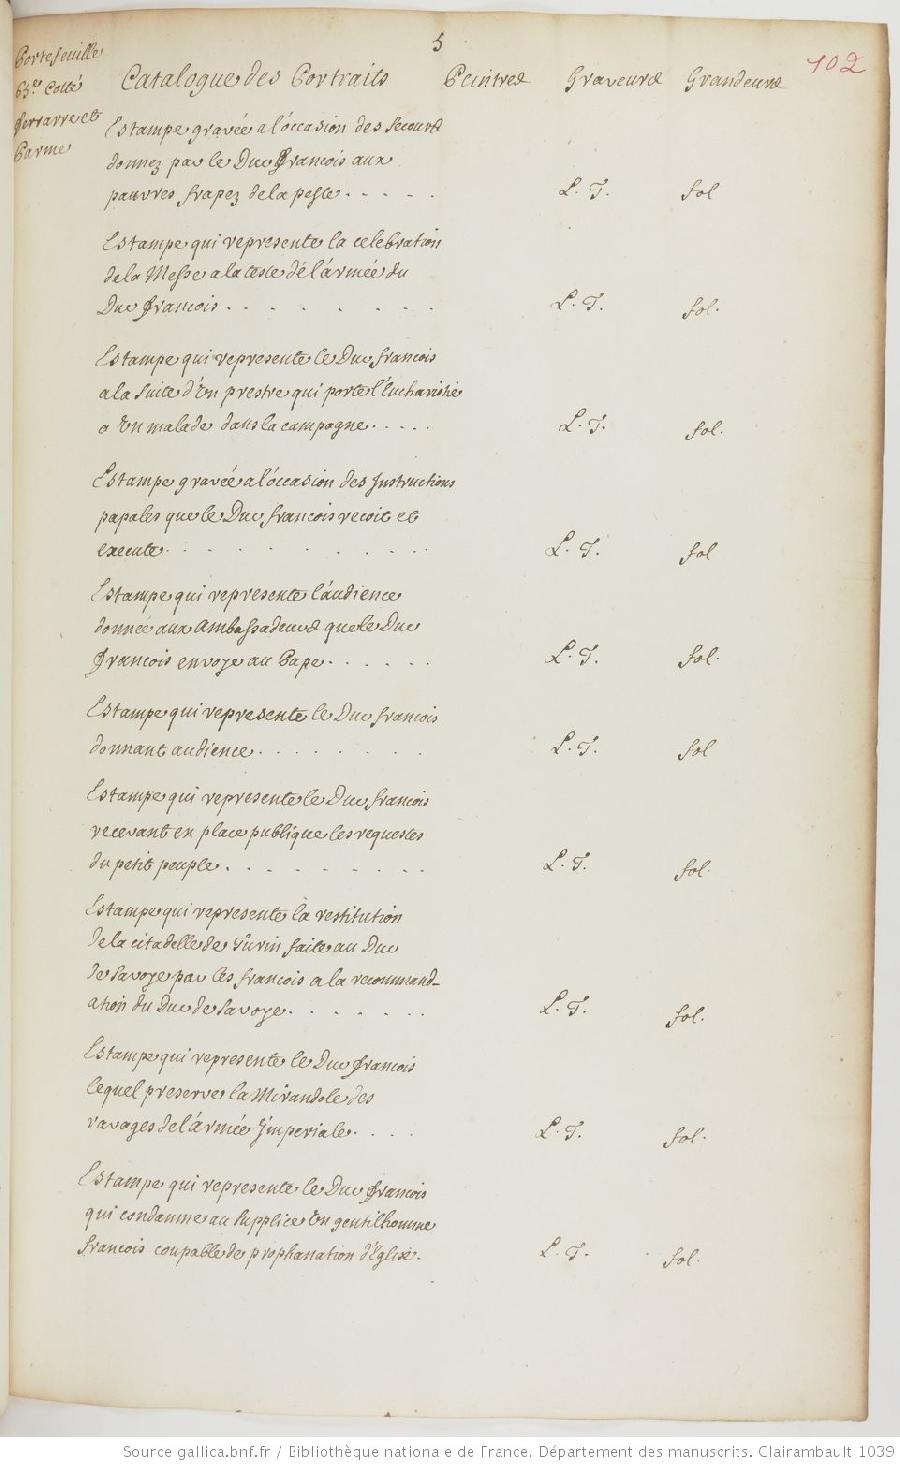 5
102
Portefeuille
63.e Cotté
ferrarre et
Parme
Catalogue des Portraits Peintres Graveurs Grandeurs
Estampe gravée a l'óccasion des secours
donnez par le Duc françois aux
pauvres frapez de la peste. . . . . L. T. fol
Estampe qui represente la celebration
de la Messe a la teste dé l'armée du
Duc françois. . . . . . . L. T. fol.
Estampe qui represente le Duc francois
a la suite d'Un prestre qui porte l'Eucharistie
a Un malade dans la campagne. . . . . L. T. fol.
Estampe gravée a l'óccasion des Instructions
papales que le Duc francois recoit et
execute. . . . . . . . L. T. fol
Estampe qui represente l'audience
donnée aux Ambassadeurs que le Duc
françois envoye au Pape. . . . . . L. T. fol.
Estampe qui represente le Duc francois
donnant audience. . . . . . . L. T. fol
Estampe qui represente le Duc francois
recevant en place publique les requestes
du petit peuple. . . . . . . L. T. fol.
Estampe qui represente la restitution
de la citadelle de Turin faite au Duc
de Savoye par les francois a la recommand-
ation du Duc de Savoye. . . . . . . L. T. fol.
Estampe qui represente le Duc francois
lequel preserve la Mirandole des
ravages de l'armée Imperiale. . . . L. T. fol.
Estampe qui represente le Duc francois
qui condamne au supplice Un gentilhomme
francois coupable de prophanation d'Eglise. L. T. fol.
Source gallica.bnf.fr / Bibliothèque nationale de France. Département des manuscrits. Clairambault 1039